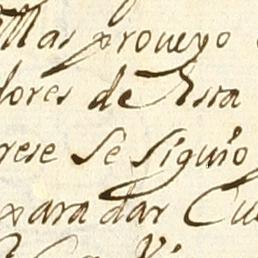 Mas proueyo
dores de Esta
rese Se Siguio
para dar Cu